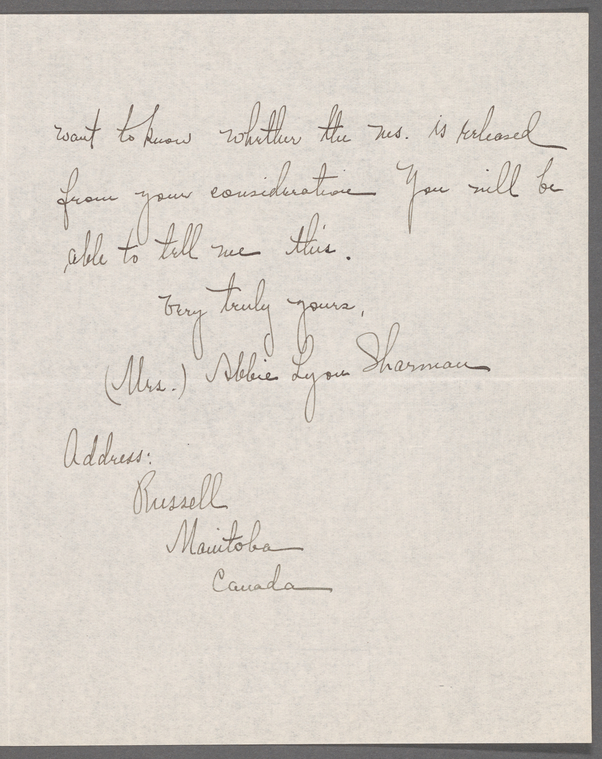 want to know whether the ms. is released
from your consideration You will be
able to tell me this.
Very truly yours,
(Mrs.) Abbie Lyon Sharman
Address:
Russell
Manitoba
Canada